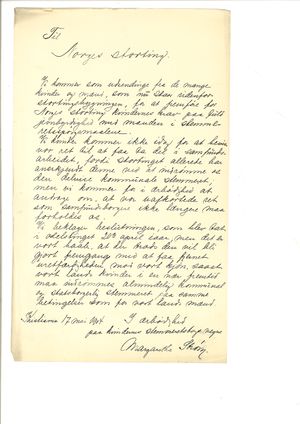 Til
Norges Storting.
Vi kommer som utsendinge fra de mange
kvinder og mænd, som nu staar udenfor
stortingsbygningen, for at fremføre for
Norges Storting kvindernes krav paa fuld
jevnbyrdighed med manden i stemme-
retsspørsmaalene.
Vi kvinder kommer ikke idag for at bevise
vor ret til at faa ta del i samfunds-
arbeidet, fordi Stortinget allerede har
anerkjendt denne med at indrømme os
den delvise kommunale stemmeret,
men vi kommer for i ærbødighed at
antyde om, at vor uafkortede ret
som samfundsborgere ikke længere maa
forholdes os.
Vi beklager beslutningen, som blev fattet
i odelstinget 20de april saar, men det er
vort haab, at den Stad den vil bli
gjort
uretfærdigheden mod vort kjøn, saast
vort lands kvinder i en nær fremtid
maa indrømmes almindelig kommunal
og statsborgerlig stemmeret paa samme
betingelser som for vort lands mænd.
Kristiania 17 mai 1904 I ærbødighed
paa kvindernes stemmeretstogs vegne
Margarethe